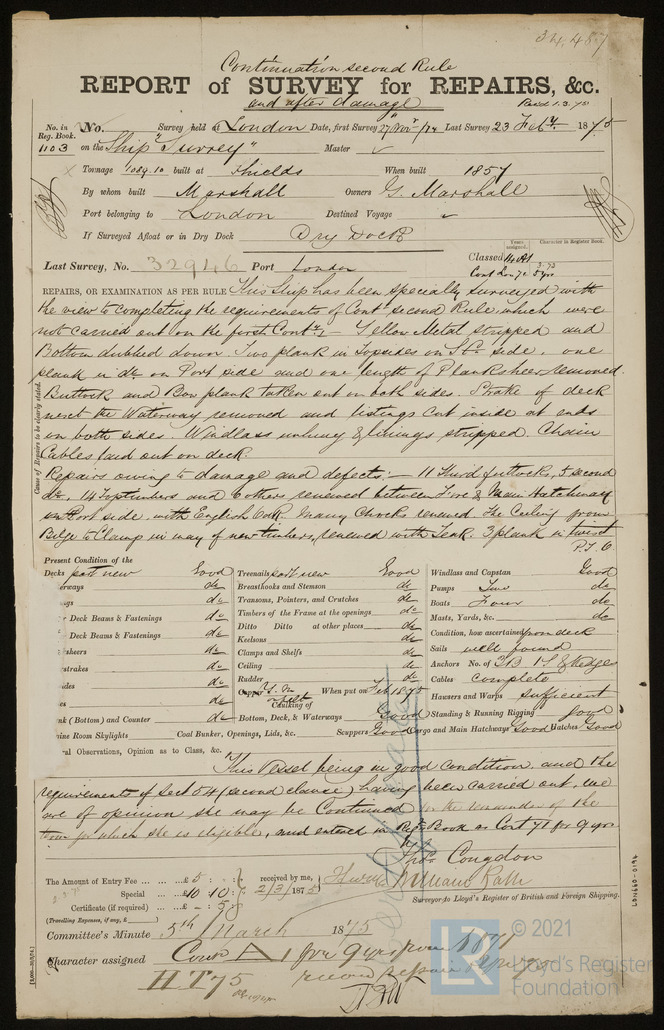 34,487
Continuation second Rule
REPORT of SURVEY for REPAIRS, &c.
and after damage
No. in Reg. Book. No. Survey held at London Date, first Survey 27 Novr /74 Last Survey 23 Feby. 1875
1103 on the Ship "Surrey" Master
Tonnage 1089.10 built at Shields When built 1857
By whom built Marshall Owners G. Marshall
Port belonging to London Destined Voyage
If Surveyed Afloat or in Dry Dock Dry Dock
Years assigned. Character in Register Book.
Last Survey, No. 32946 Port London Classed
REPAIRS, OR EXAMINATION AS PER RULE This Ship has been specially surveyed with
the view to completing the requirements of Contn second Rule which were
not carried out on the first Contn. - Yellow Metal stripped and
Bottom dubbed down. Two plank in Topsides on St. side, one
plank in do on Port side and one length of Planksheer removed.
Buttock and Bow plank taken out on both sides. Strake of deck
next the Waterway removed and listings cut inside at ends
on both sides. Windlass unhung & linings stripped. Chain
Cables laid out on deck
Repairs owing to damage and defects:- 11 Third futtocks, 5 second
do, 14 Toptimbers and 6 others renewed between Fore & Main Hatchway
on Port side, with English Oak. Many Chocks renewed. The Ceiling from
Bilge to Clamp in way of new timbers, renewed with Teak. 3 plank in twist
P.T.O
Cause of Repairs to be clearly stated.
Present Condition of the
Decks part new Good
erways do
ngs do
r Deck Beams & Fastenings do
r Deck Beams & Fastenings do
sheers do
strakes do
ides do
s do
nk (Bottom) and Counter do
Treenails part new Good
Breasthooks and Stemson do
Transoms, Pointers, and Crutches do
Timbers of the Frame at the openings do
Ditto Ditto at other places do
Keelsons do
Clamps and Shelfs do
Ceiling do
Rudder do
Copper Y. M. When put on Feb 1875
Caulking of
Bottom, Deck, & Waterways Good
Windlass and Capstan Good
Pumps Two do
Boats Four do
Masts, Yards, &c. do
Condition, how ascertained from deck
Sails well found
Anchors No. of 3 B 1 S & Kedges
Cables complete
Hawsers and Warps sufficient
Standing & Running Rigging Good
gine Room Skylights Coal Bunker, Openings, Lids, &c. Scuppers Good Cargo and Main Hatchways Good Hatches Good
ral Observations, Opinion as to Class, &c.
This Vessel being in good condition, and the
requirements of Sect 54 (second clause) having been carried out, we
are of opinion she may be Continued in the remainder of the
term for which she is eligible, and entered in Regr. Book as Cont 71 for 9 yrs
Thos Congdon
William Rath
Surveyor to Lloyd's Register of British and Foreign Shipping.
The Amount of Entry Fee £ 5 : : received by me,
Special £ 10 10 : 2/3/1875
Certificate (if required) £ - : 5 :
(Travelling Expenses, if any, £ )
Committee's Minute 5th March 1875
Character assigned Cont A 1 for 9 yrs from 1871
HT75
LDN660-0196
© 2021
LR Lloyd's Register
Foundation